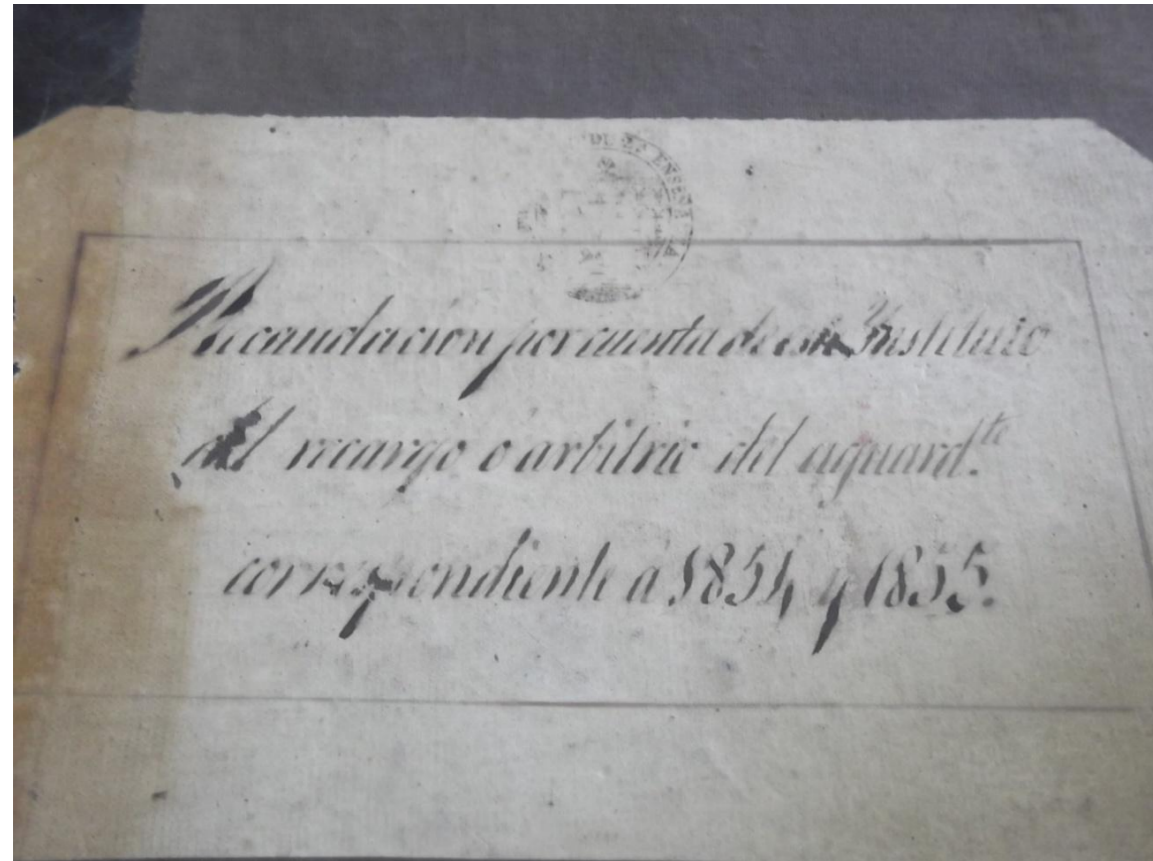 DE 2ª ENSEÑ
Recaudacion por cuenta de este Instituto
del recargo o arbitrio del aguard.te
correspondiente á 1854 y 1855.